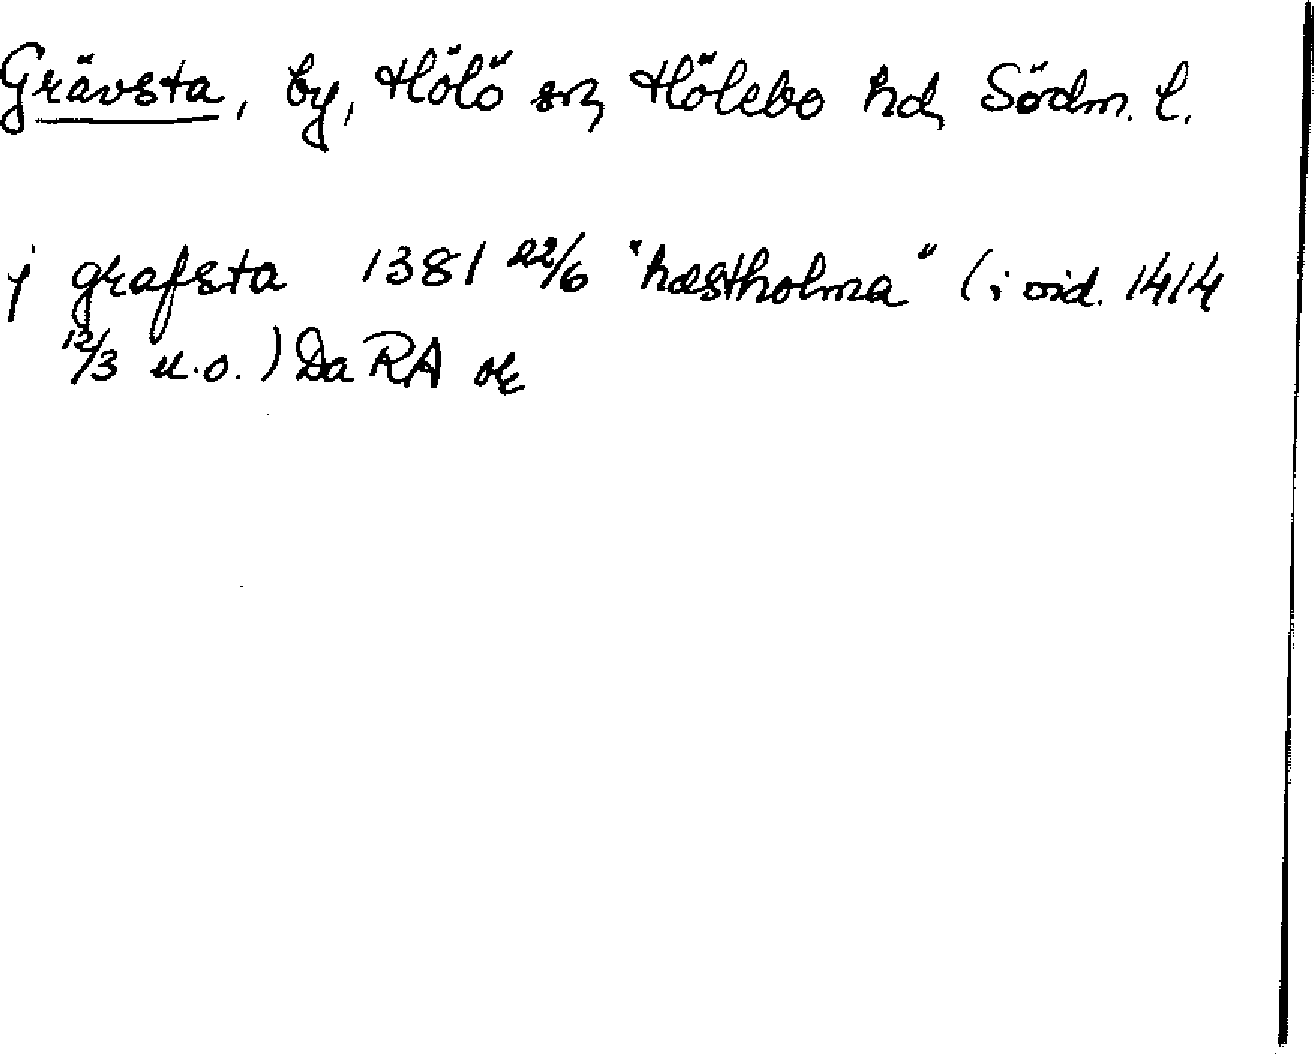 Grävsta, by, Hölö sn, Hölebo hd, Södm. l.
j grafsta 1381 22/6 "hæstholma" (i vid. 1414
12/3 u.o.) Da RA